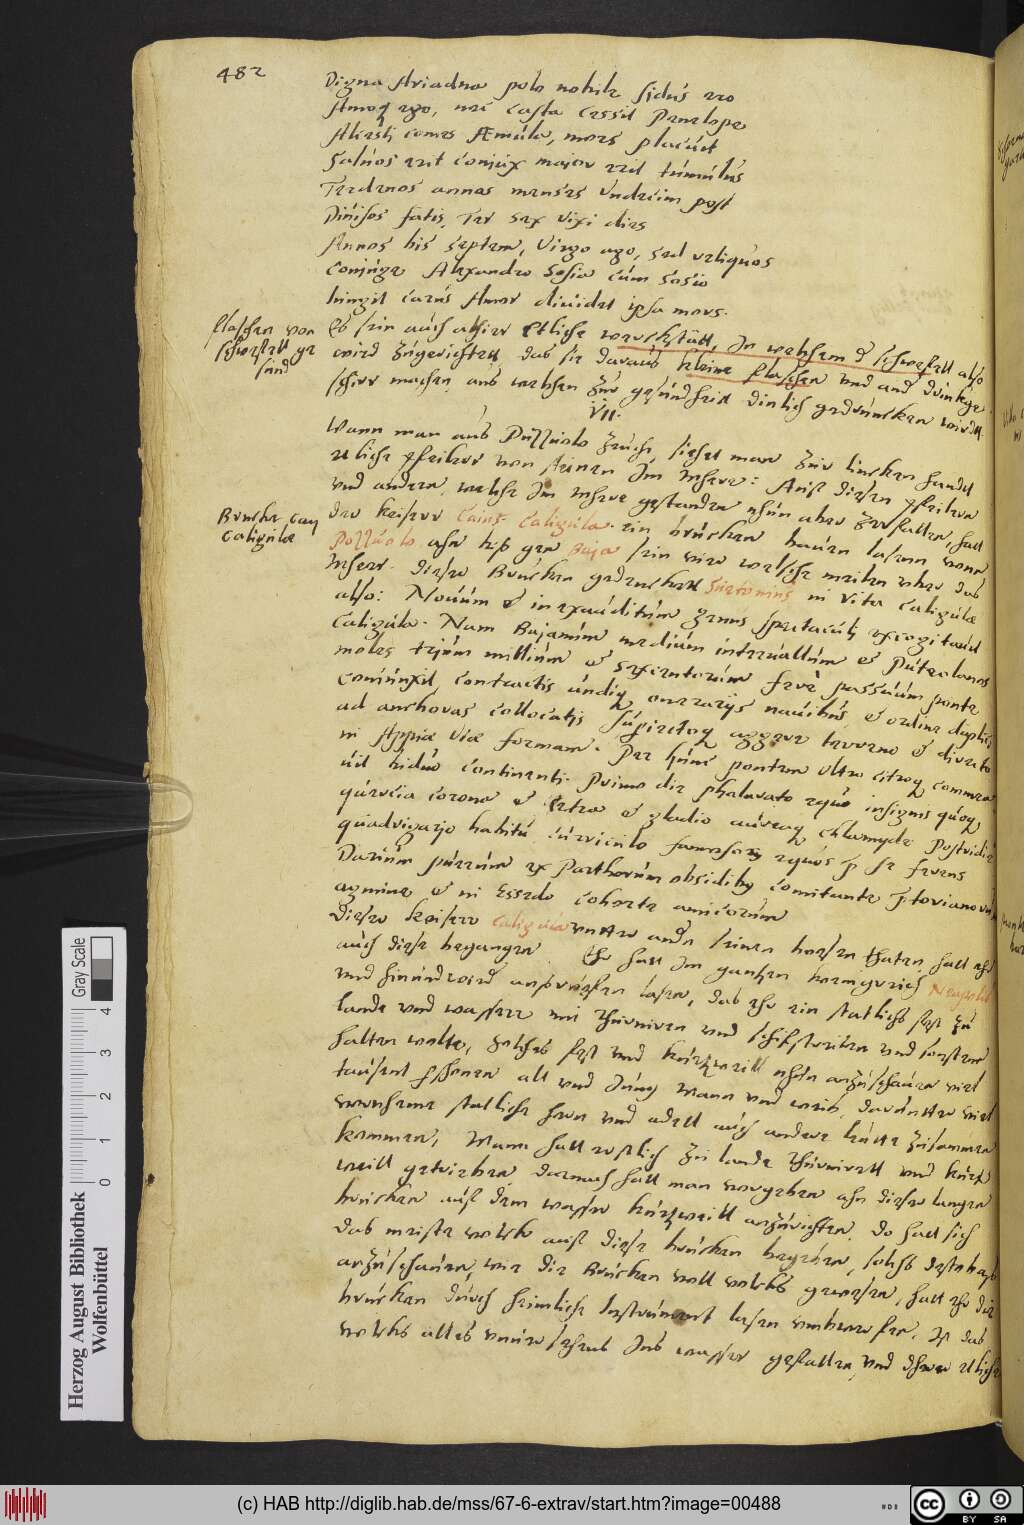 482
Digna Ariadneo polo nobile sidus ero
Amoq ego, nec casta cessit Penelope
Alcesti comes Æmula, mors placuit
Saluos erit conjux major erit tumulus
Terdenos annos menses Undecim post
Diuisos fatis, Ter sex vixi dies
Annos bis septem, Virgo ego, sed reliquos
Conjuge Alexandro Sosia cum Sosio
Iungit carus Amor diuidet ipsa mors.
Flaschen von
schweffell ge
sund
Es sein auch alhier Etliche werckstätt, In welchem d schweffell also
wird zugerichtett, das sie daraus kleine flaschen und and drinckge
schirr machen aus welchen zur gesundheit dinlich gedruncken wirdtt.
VII.
Wann man aus Puzzuolo zeucht, siehet man zur lincken handt
etliche pfeiler von steinen Im Mheere: Auff diesen pfeilern
und andern, welche Im Mheere gestanden nhun aber zerfallen, hatt
Brucke cay
Caligulæ
der keiser Caius Caligula ein brucken bauen lasen vonn
Pozzuolo ahn biß gen Baja sein vier welsche meilen uber das
Mheer. Dieser Brucken gedencket Suetonius in vita Caligulæ
also: Nouum & inexauditum genus spectaculi excogitauit
Caligula. Nam Bajanum medium interuallum & Puteolanos
moles trium millium & sexcentorum fere passuum ponte
coniunxit contractis undiq onerarijs nauibus, & ordine duplici
ad anchoras collocatis superiectoq aggere terreno & directo
in Appiæ viæ formam. Per hunc pontem ultro citroq commea
uit biduo continenti. Primo die phalerato equo insignis quoq
quercia corona & Cetra & gladio aureaq chlamyde Postridie
quadrigario habitu curriculo famosorum equos p se ferens
Darium puerum ex Parthorum obsidibus comitante pretorianorum
agmine & in Essedo cohorte amicorum
Dieser keiser Caligula untter andn seinen bosen thaten hatt ehr
auch diese begangen. Ehr hatt Im gantzen koenigreich Neapolis
und hinundwerd ausruffen lasen, das ehr ein statlichs fest zu
lande und wasser mit Thurniren und schiffstreiten und sonsten
halten wolte, solches fest und kurtzweill nhun anzuschauen viel
tausent personen alt und Jung Mann und weib, daruntter viel
vornheme statliche hern und adell auch andere leute zusammen
kommen, Mann hatt erstlich zu lande Thurnirett und kurtz
weill getrieben, darnach hatt man vorgeben ahn dieser langen
brucken auff dem wasser kurtzweill anzurichten, do hatt sich
das meiste volck auff diese brucken begeben, solchs destobaß
anzuschauen, wie die Brucken voll volcks gewesen, hatt ehr die
brucken durch heimliche Instrument lasen umbwerfen, Ist das
volcks alles unversehens Ins wasser gefallen, und Ihrer etliche
Gray Scale
0 1 2 3 4
Herzog August Bibliothek
Wolfenbüttel
(c) HAB http://diglib.hab.de/mss/67-6-extrav/start.htm?image=00488
cc BY SA